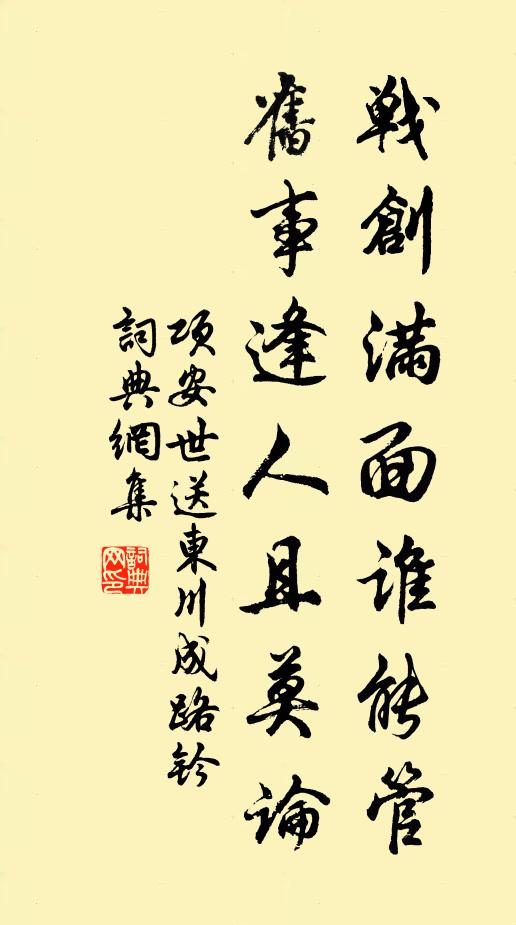 戦創滿面誰能管
舊事逢人且莫論
项安世送東川成路鈐
詞典網集
詞典网印